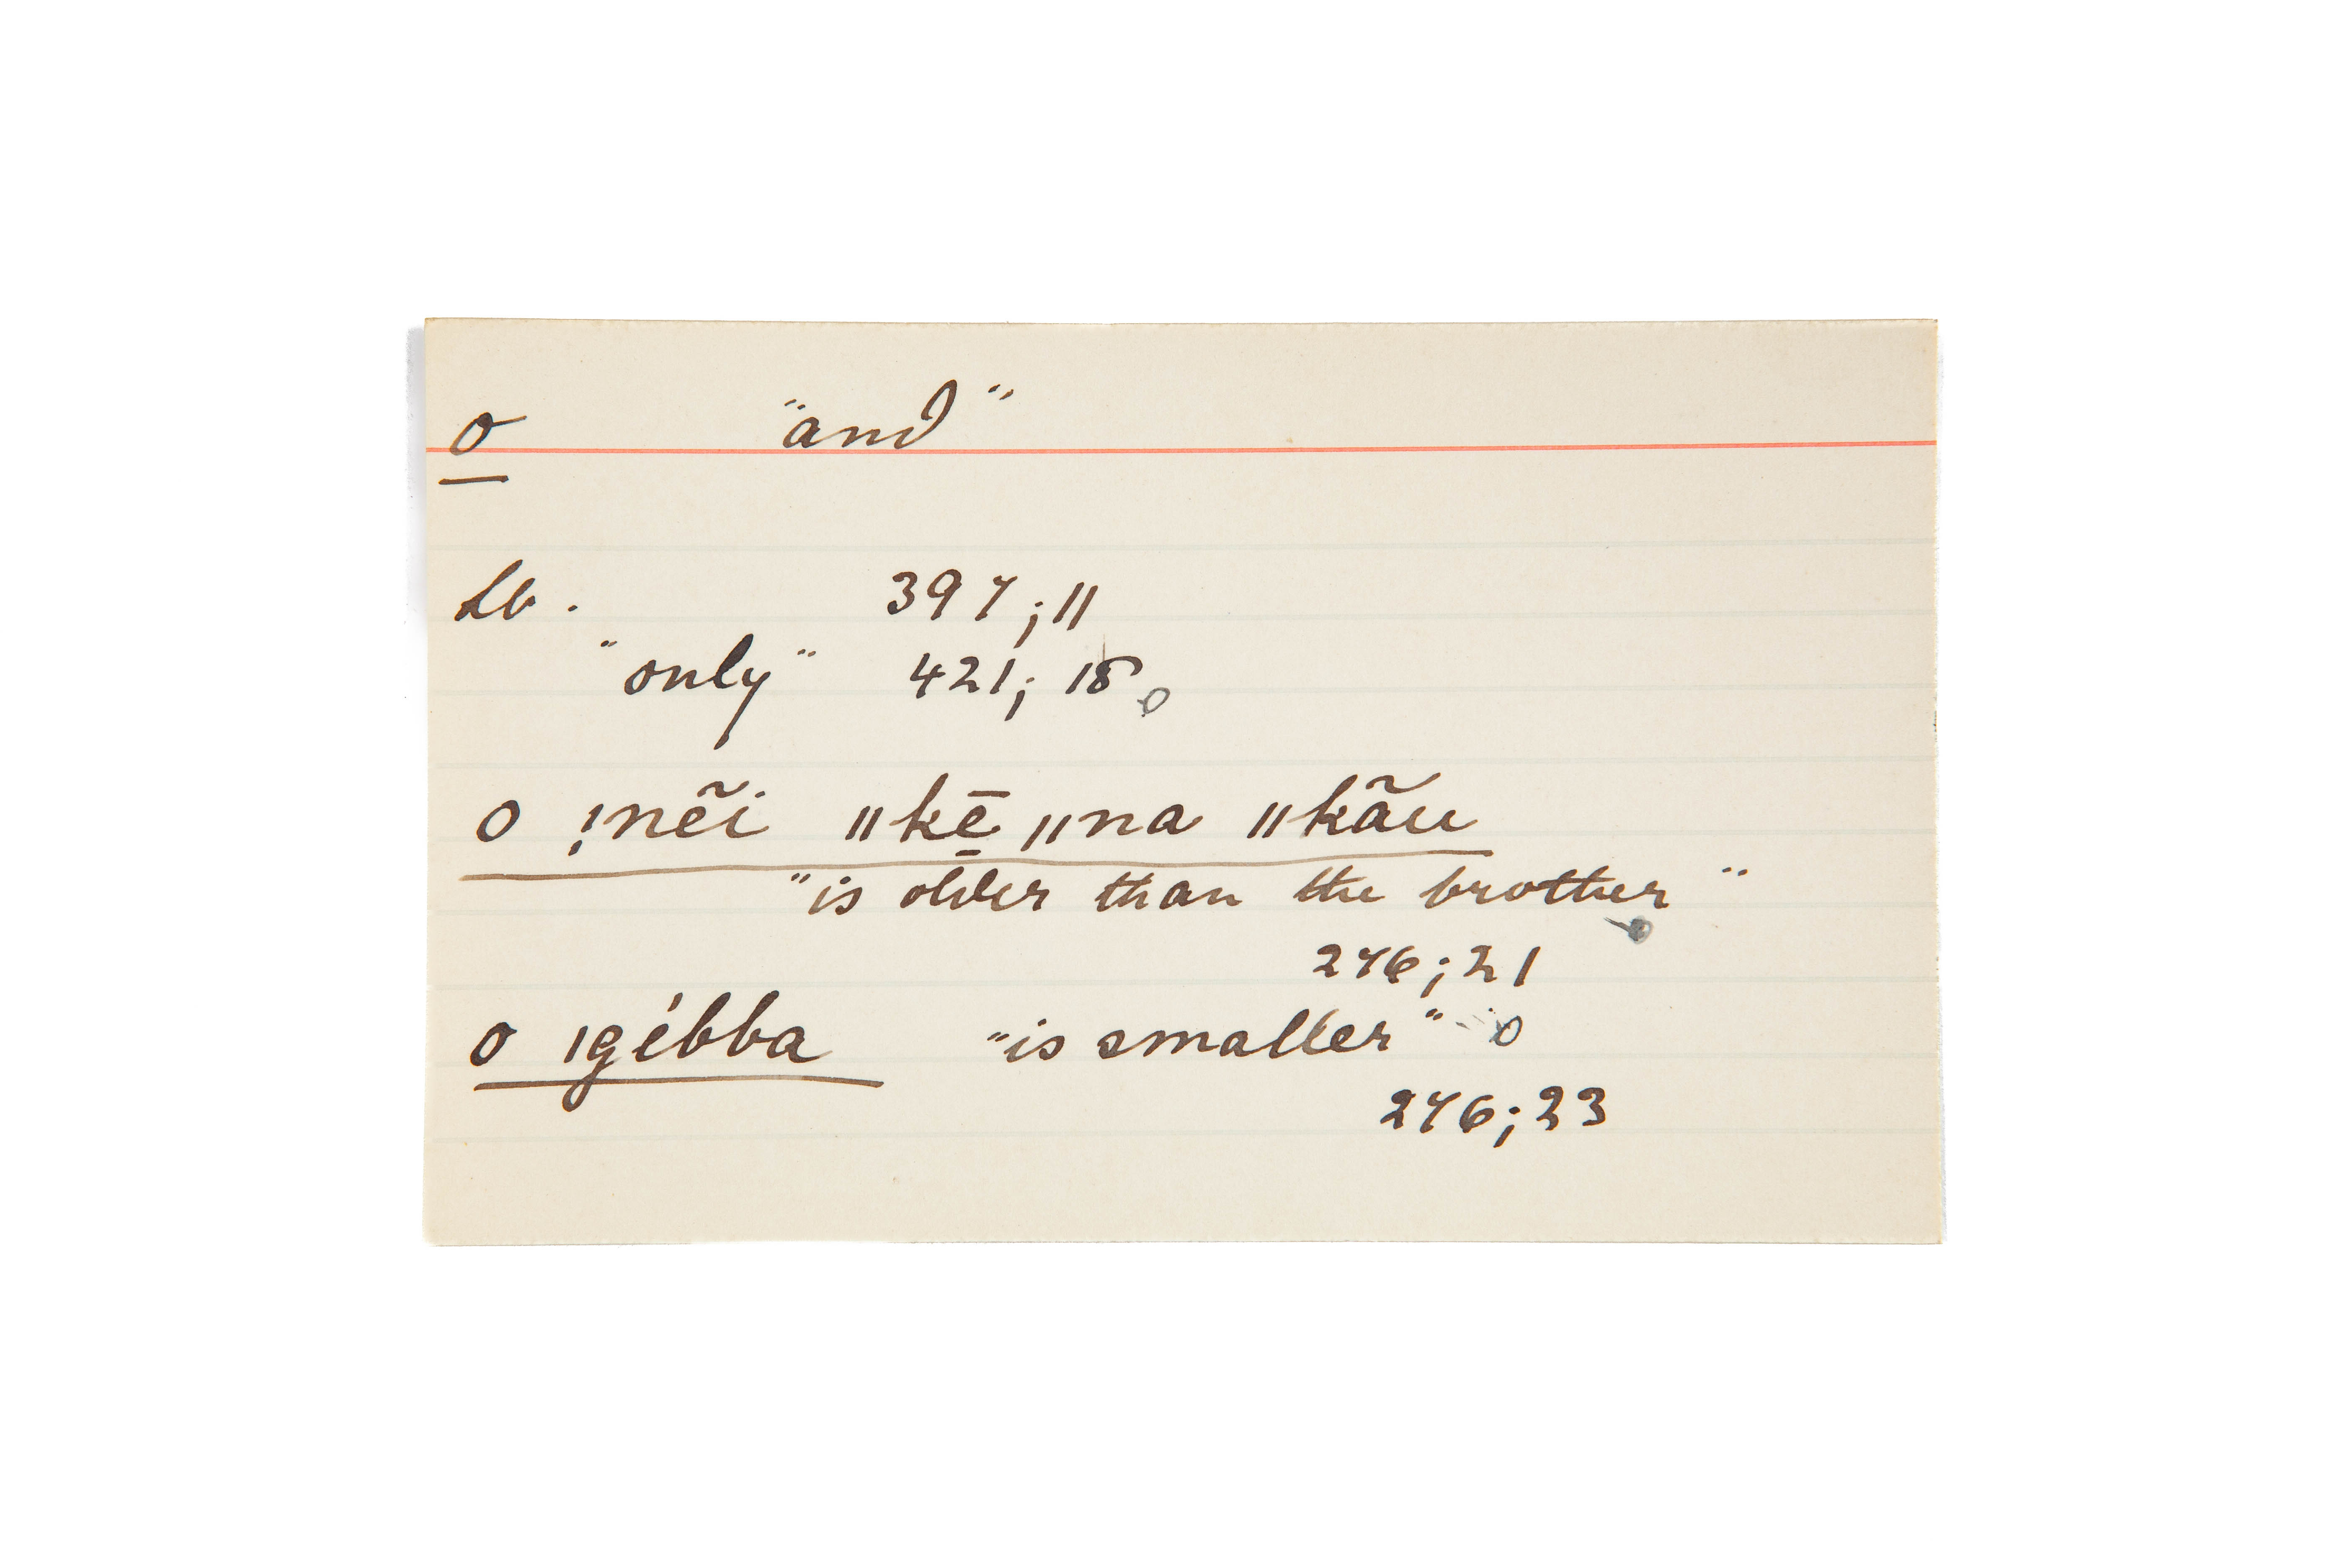 o "and"
Lb. 397; 11
"only" 421; 18
o !nẽi ǁkē̱ ǁna ǁkãu
"is older than the brother"
276; 21
o ǀgébba "is smaller"
276; 23